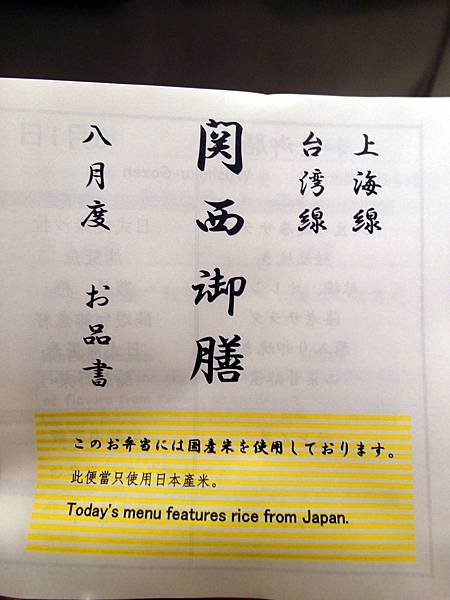 上海線
台湾線
関西御膳
八月度 お品書
このお弁当には国産米を使用しております。
此便當只使用日本産米。
Today's menu features rice from Japan.